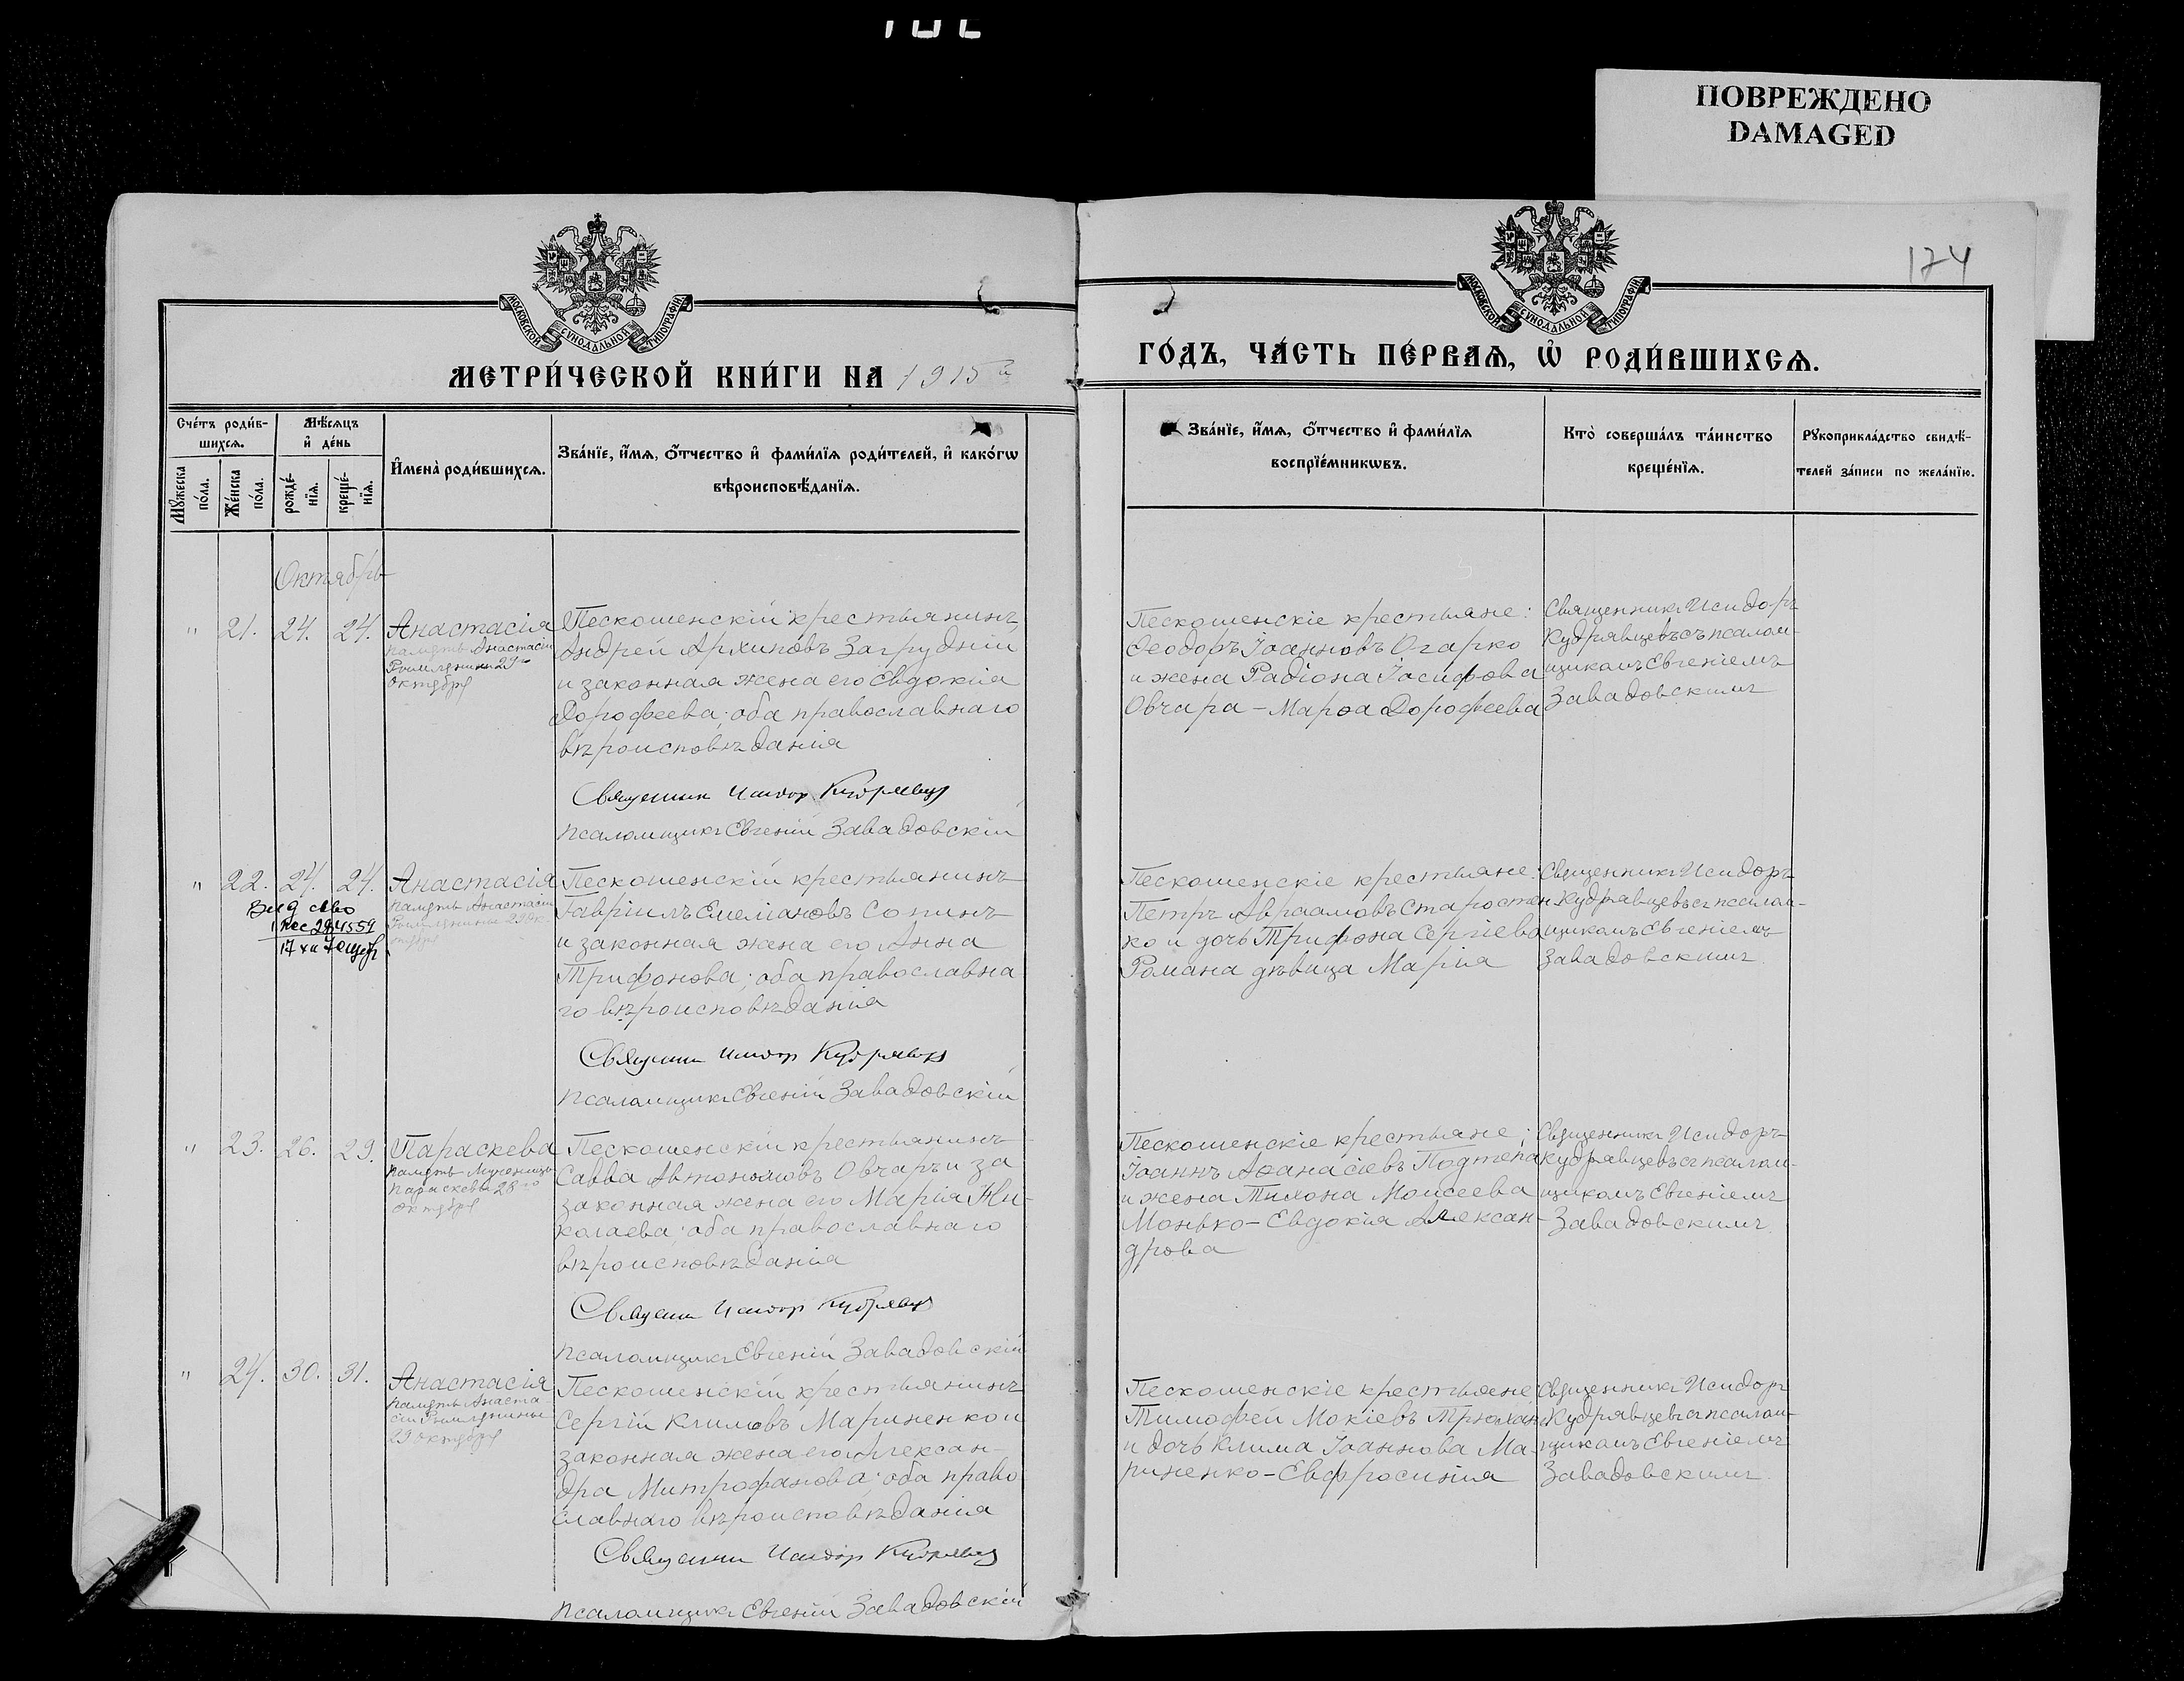 ПОВРЕЖДЕНО
DAMAGED
174
МОСКОВСКОЙ СѴНОДАЛЬНОЙ ТИПОГРАФІИ
МОСКОВСКОЙ СѴНОДАЛЬНОЙ ТИПОГРАФІИ
МЕТРИ́ЧЕСКОЙ КНИ́ГИ НА 1915
ГО́ДЪ, ЧА́СТЬ ПЕ́РВАѦ, Ѽ РОДИ́ВШИХСѦ.
Сче́тъ роди́в-
шихсѧ.
Мꙋ́жеска
по́ла.
Же́нска
по́ла.
Мѣ́сѧцъ
и҆ де́нь
рожде́-
нїѧ.
креще́-
нїѧ.
И҆мена̀ роди́вшихсѧ.
Зва́нїе, и҆́мѧ, ѻ҆́тчество и҆ фами́лїѧ роди́телей, и҆ како́гѡ
вѣроисповѣ́данїѧ.
Зва́нїе, и҆́мѧ, ѻ҆́тчество и҆ фами́лїѧ
воспрїе́мникѡвъ.
Кто̀ соверша́лъ та́инство
креще́нїѧ.
Рꙋкоприкла́дство свидѣ́-
телей за́писи по жела́нїю.
Октябрь
" 21. 24. 24. Анастасія
память Анастасіи
Римлянины 29
октября
Пескошенскій крестьянинъ
Андрей Архиповъ Загрудній
и законная жена его Евдокія
Дорофеева; оба православнаго
вѣроисповѣданія
Священник Исидор Кудрявцев
Псаломщикъ Евгеній Завадовскій
Пескошенскіе крестьяне:
Ѳеодоръ Іоанновъ Огарко
и жена Радіона Іосифова
Овчара - Марѳа Дорофеева
Священникъ Исидоръ
Кудрявцевъ съ псалом-
щикомъ Евгеніемъ
Завадовскимъ
" 22. 24. 24. Анастасія
память Анастасіи
Римлянины 29 ок
тября
Пескошенскій крестьянинъ
Гавріилъ Емеліановъ Сопинъ
и законная жена его Анна
Трифонова; оба православна
го вѣроисповѣданія
Священник Исидор Кудрявцев
Псаломщикъ Евгеній Завадовскій
Пескошенскіе крестьяне:
Петръ Авраамовъ Старостен
ко и дочь Трифона Сергіева
Романа дѣвица Марія
Священникъ Исидоръ
Кудрявцевъ съ псалом-
щикомъ Евгеніемъ
Завадовскимъ
" 23. 26. 29. Параскева
память Мученицы
Параскевы 28го
октября
Пескошенскій крестьянинъ
Савва Автономовъ Овчаръ и за
законная жена его Марія Ни-
колаева; оба православнаго
вѣроисповѣданія
Священник Исидор Кудрявцев
Псаломщикъ Евгеній Завадовскій
Пескошенскіе крестьяне;
Іоаннъ Аѳанасіевъ Подтепа
и жена Тихона Моисеева
Монько - Евдокія Алексан-
дрова
Священникъ Исидоръ
Кудрявцевъ съ псалом-
щикомъ Евгеніемъ
Завадовскимъ
" 24. 30. 31. Анастасія
память Анаста-
сіи Римлянины
29 октября
Пескошенскій крестьянинъ
Сергій Климовъ Мариненко и
законная жена его Алексан-
дра Митрофанова; оба право
славнаго вѣроисповѣданія
Священник Исидор Кудрявцев
Псаломщикъ Евгеній Завадовскій
Пескошенскіе крестьяне
Тимофей Мокіевъ
и дочь Клима Іоаннова Ма-
риненко - Евфросинія
Священникъ Исидоръ
Кудрявцевъ съ псалом-
щикомъ Евгеніемъ
Завадовскимъ